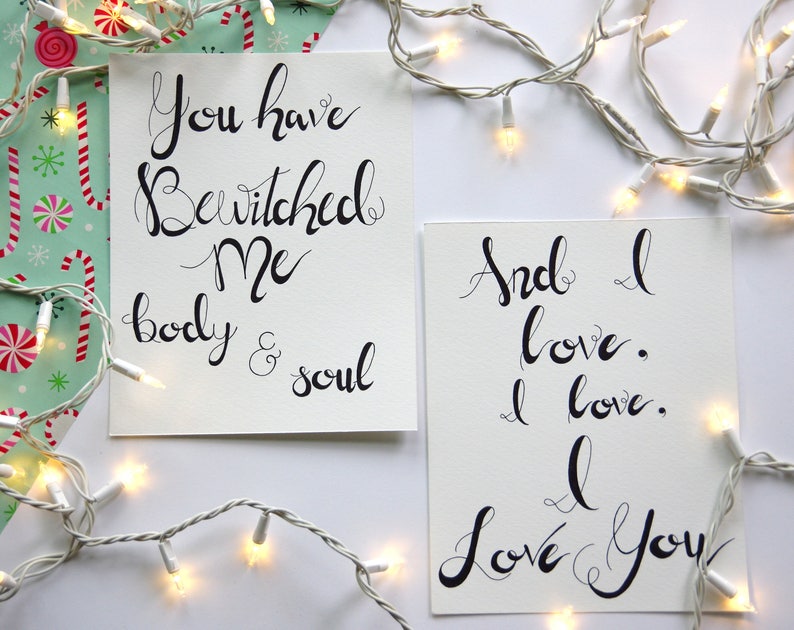 You have
Bewitched
Me
body
&
soul
And I
love,
I love,
I
Love You